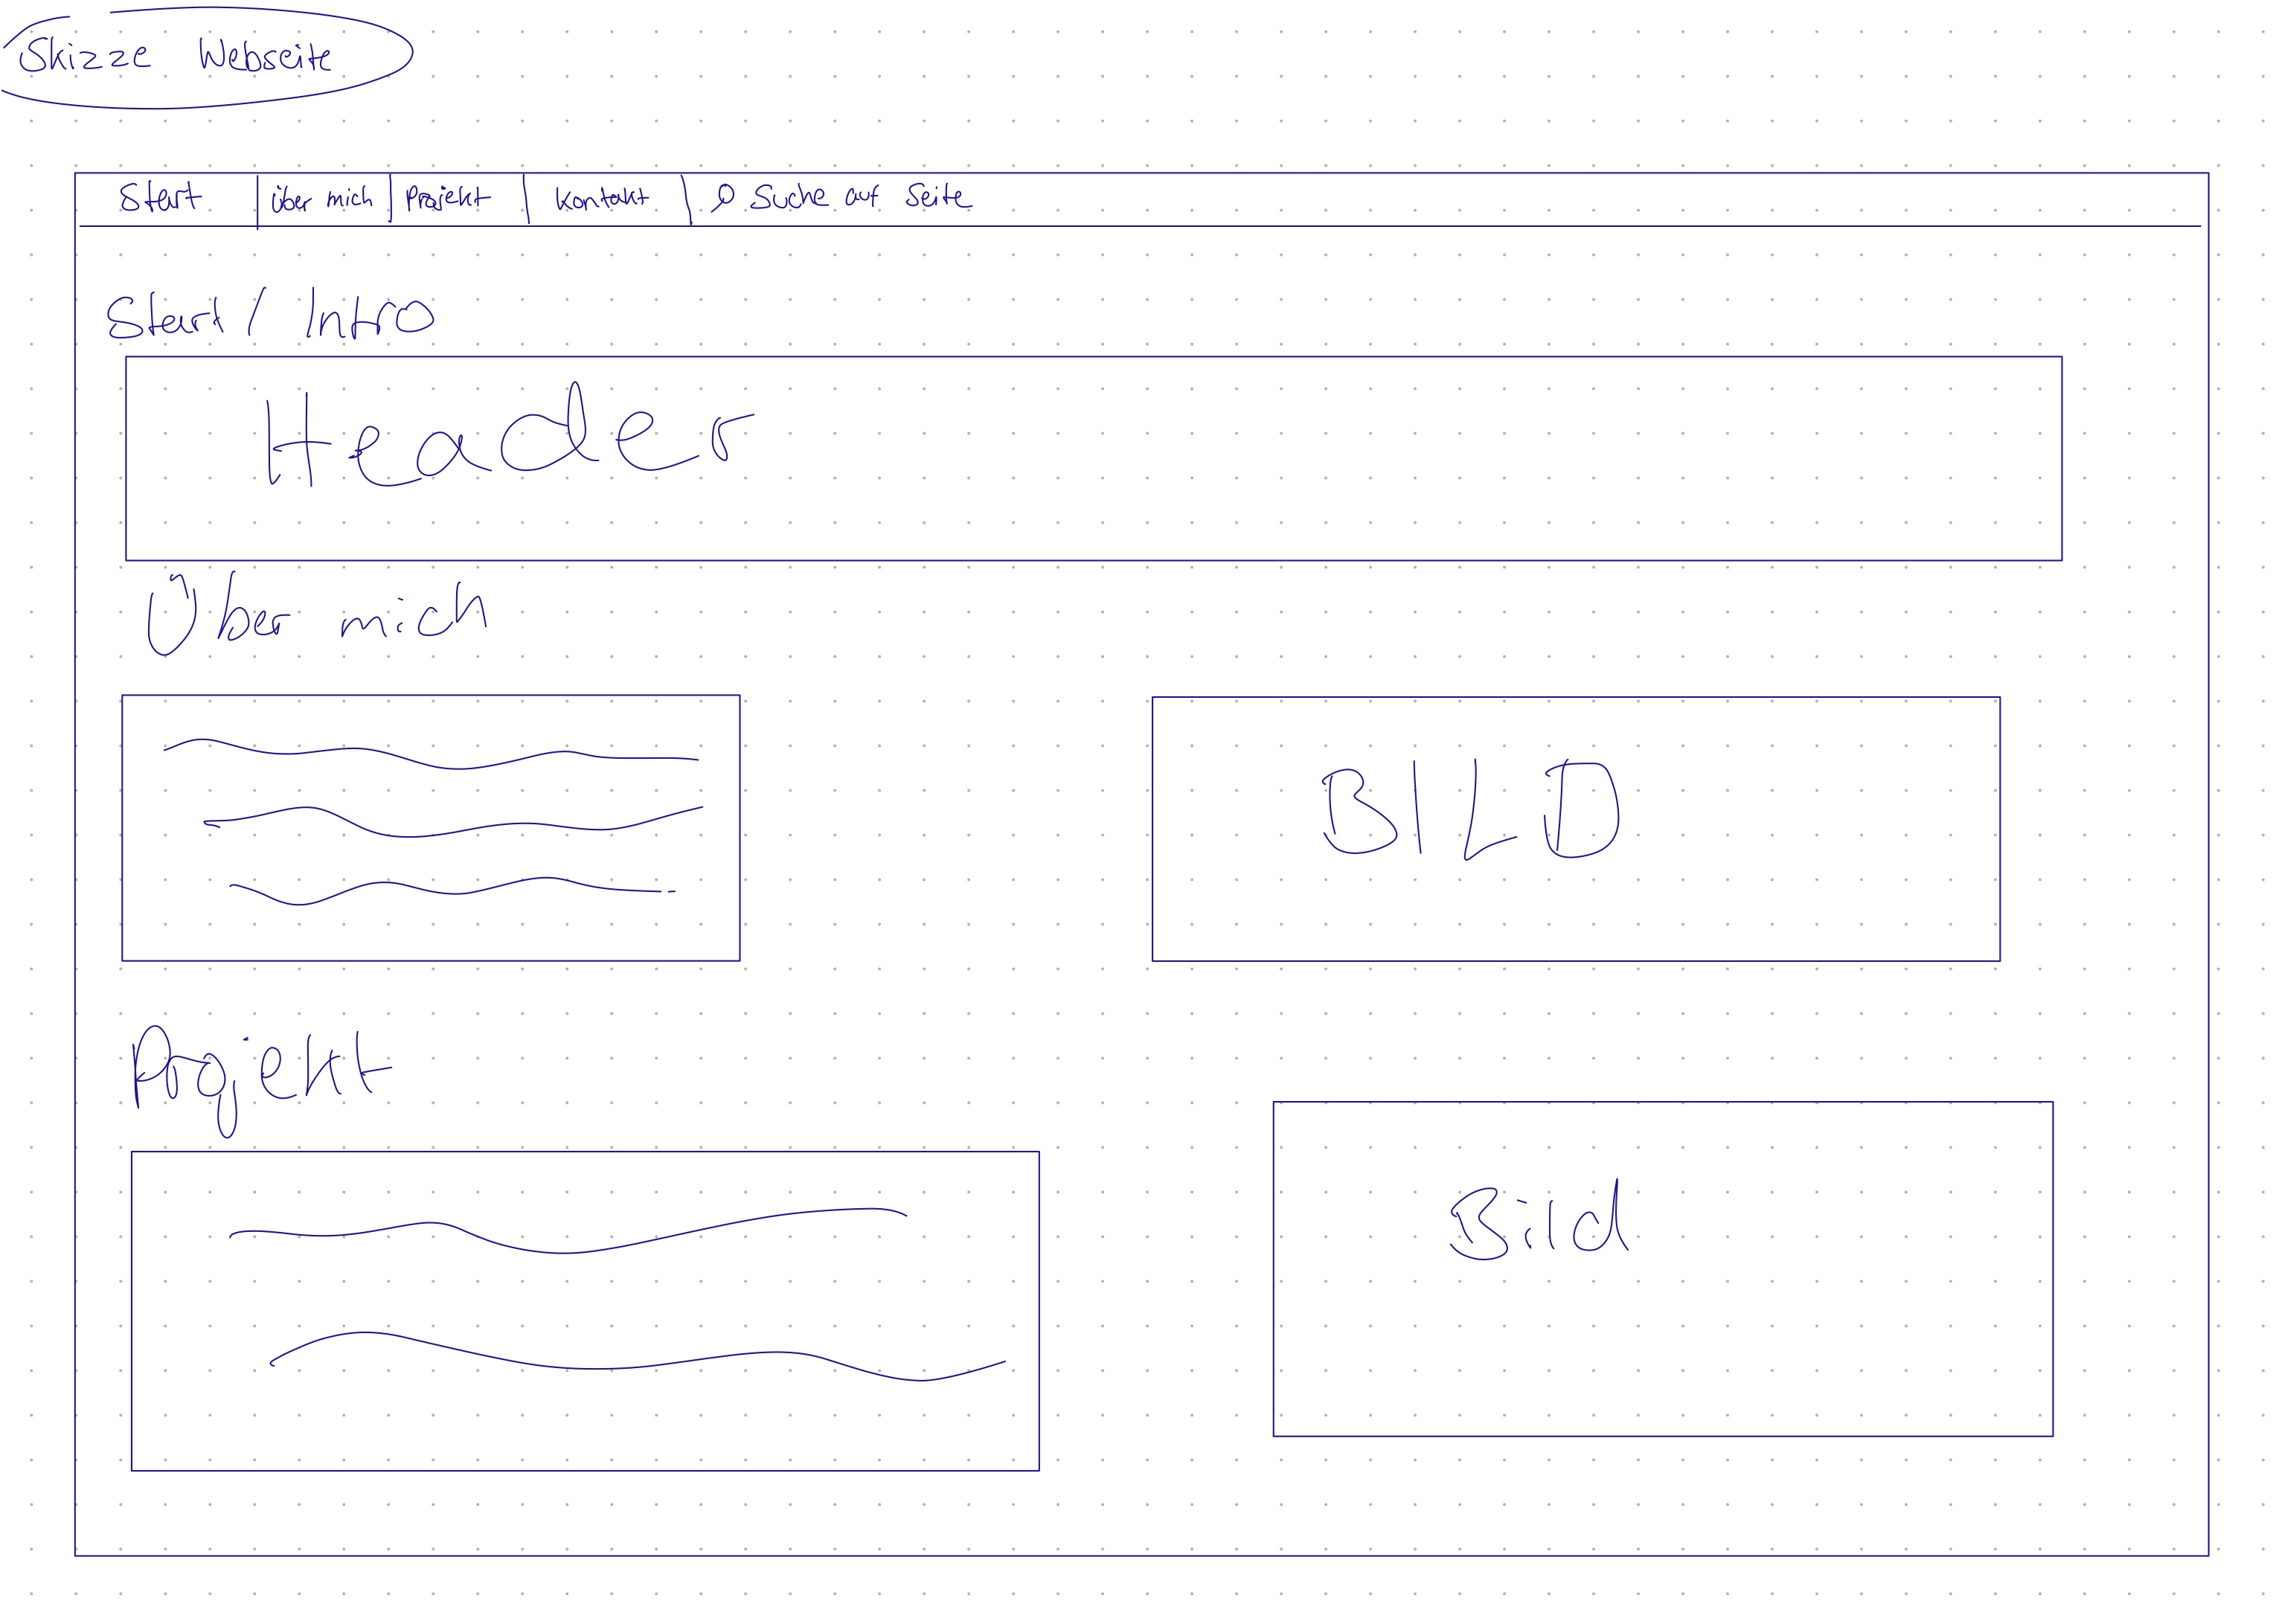 Skizze Webseite
Start | über mich | Projekt | Kontakt | Suche auf Seite
Start / Intro
Header
Über mich
BILD
Projekt
Bild